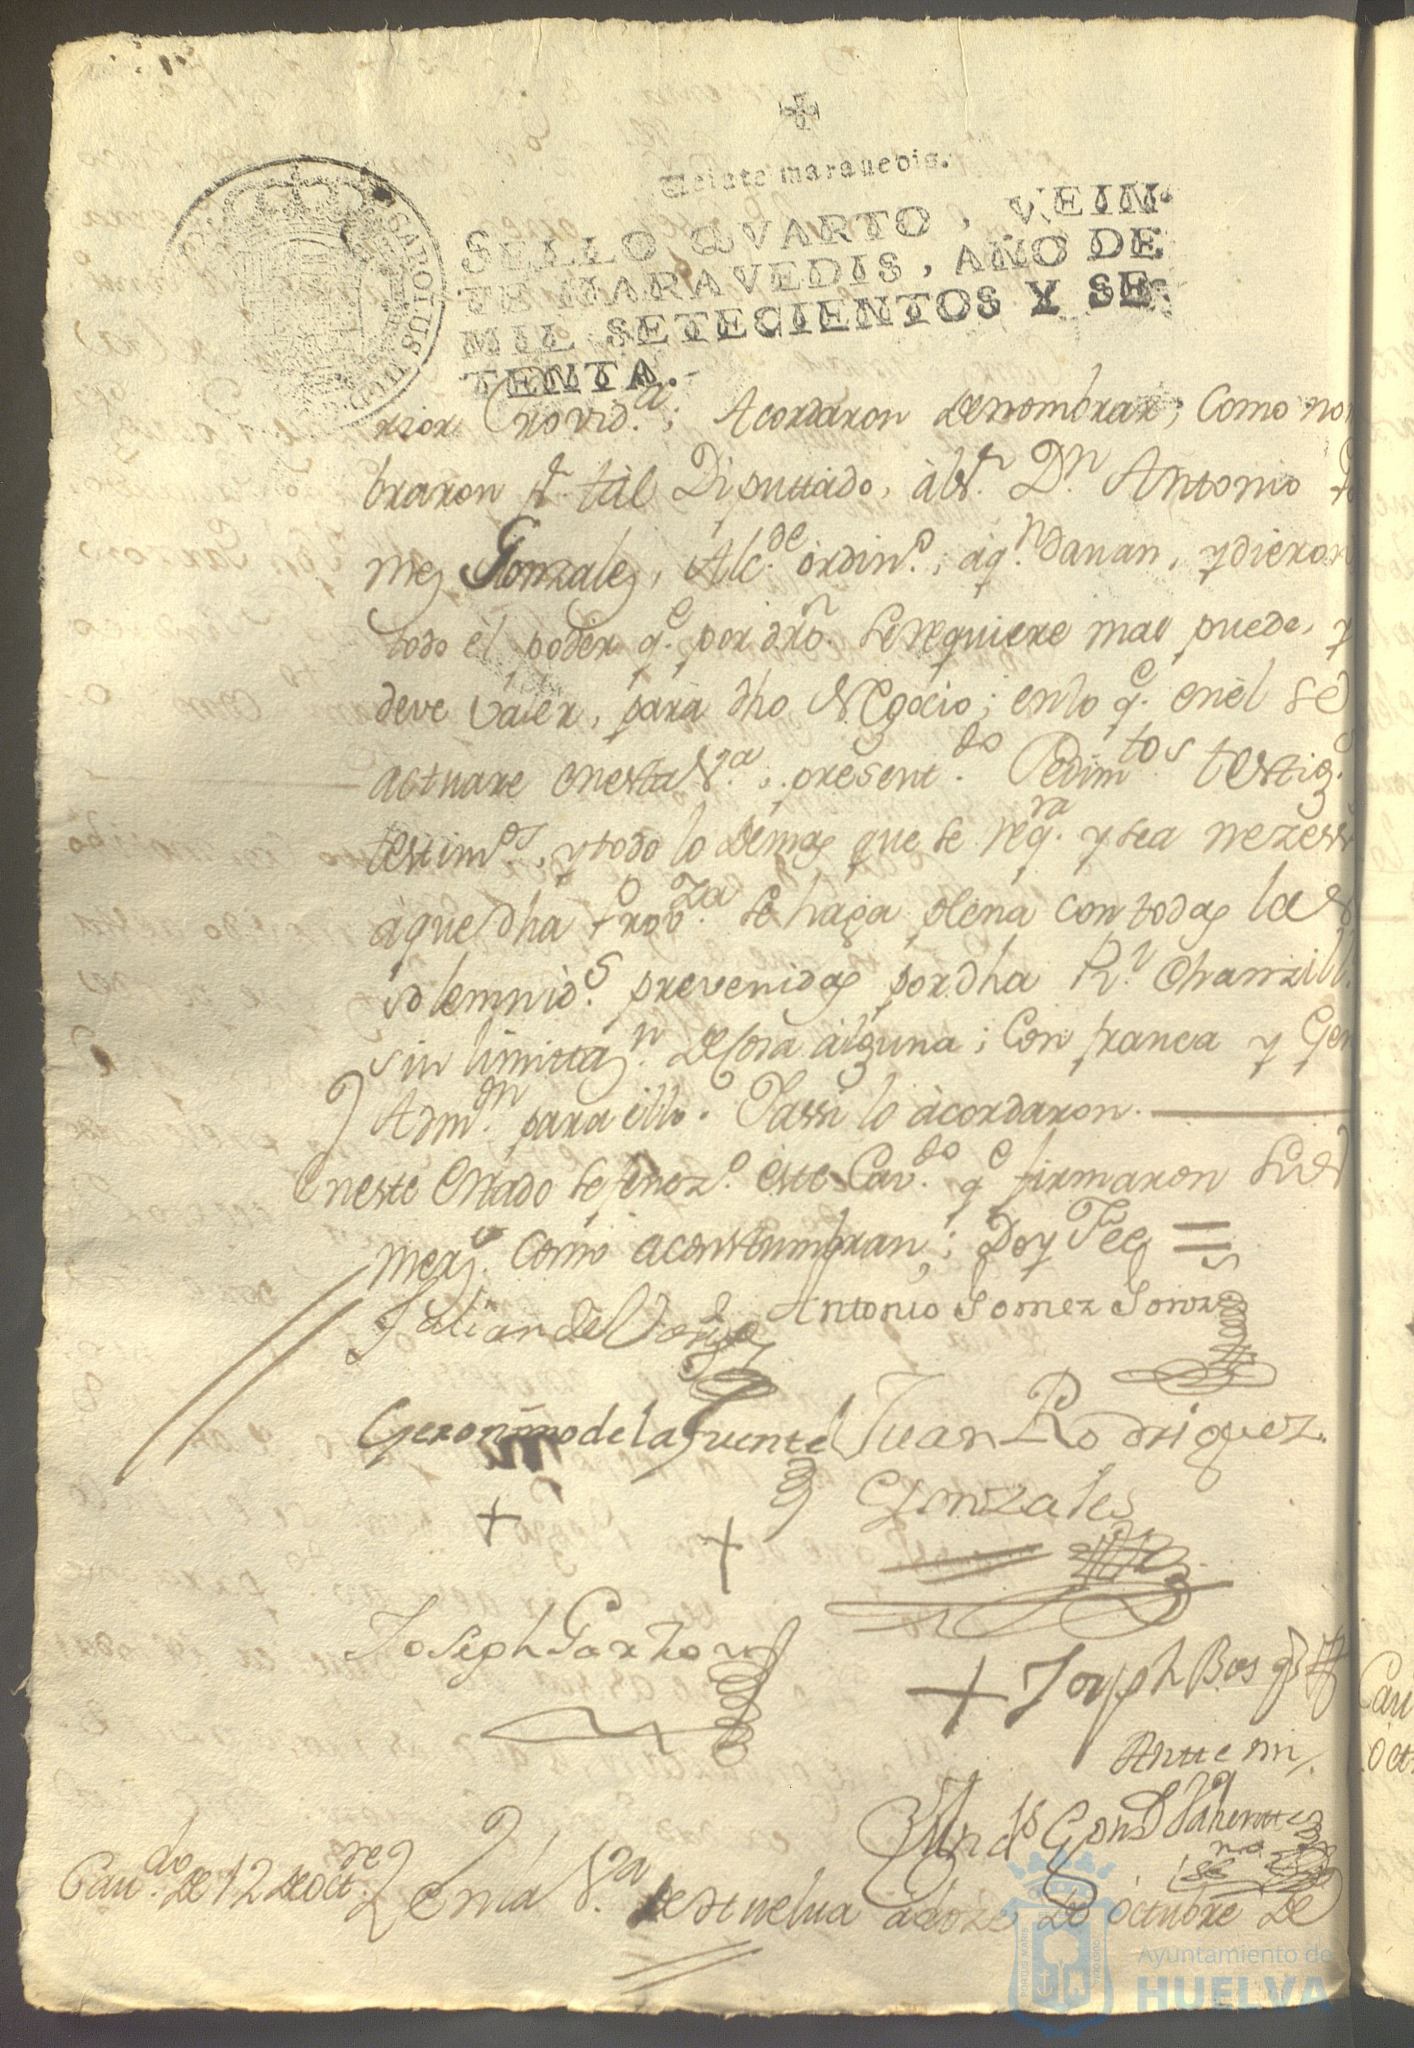 Veinte maravedis.
SELLO QVARTO, VEIN-
TE MARAVEDIS, AÑO DE
MIL SETECIENTOS Y SE-
TENTA.
CAROLUS III D.G.
rior Provid.ª; Acordaron de nombrar, como nom
braron pr. tál Diputtado, àl Sr. Dn. Antonio Go
mez Gonzalez, Alc.de òrdin.º, àq.n davan, y dieron
todo él poder q.e por drõ. se requiere mas puede, y
deve valer, para dho Negocio; en lo q.e en èl se
actuare en esta V.ª, present.do Pedim.tos testig.s
testim.os, y todo lo demas que se req.ra y sea nezess
à que dha Prob.za se haga plena con todas las
solemnid.s prevenidas por dha R.l Chanzill.
sin limittaz.n de cosa alguna; con franca y Gen
Adm.on para ello. Y assi lo àcordaron.
En este Estado se fenez.º este Cav.do q.e firmaron sus
merz.s como acostumbran; Doy Fee =
Julian de
Antonio Gomez Gonzs
Geronimo de la Fuente
Juan Rodriguez
Gonzales
+ +
Joseph Garzon
+ Joseph
Antte mi,
Cav.do de 12 de oct.re
En la V.ª de Huelva à doze de òctubre de
Cav
Oct.
Ayuntamiento de
HUELVA